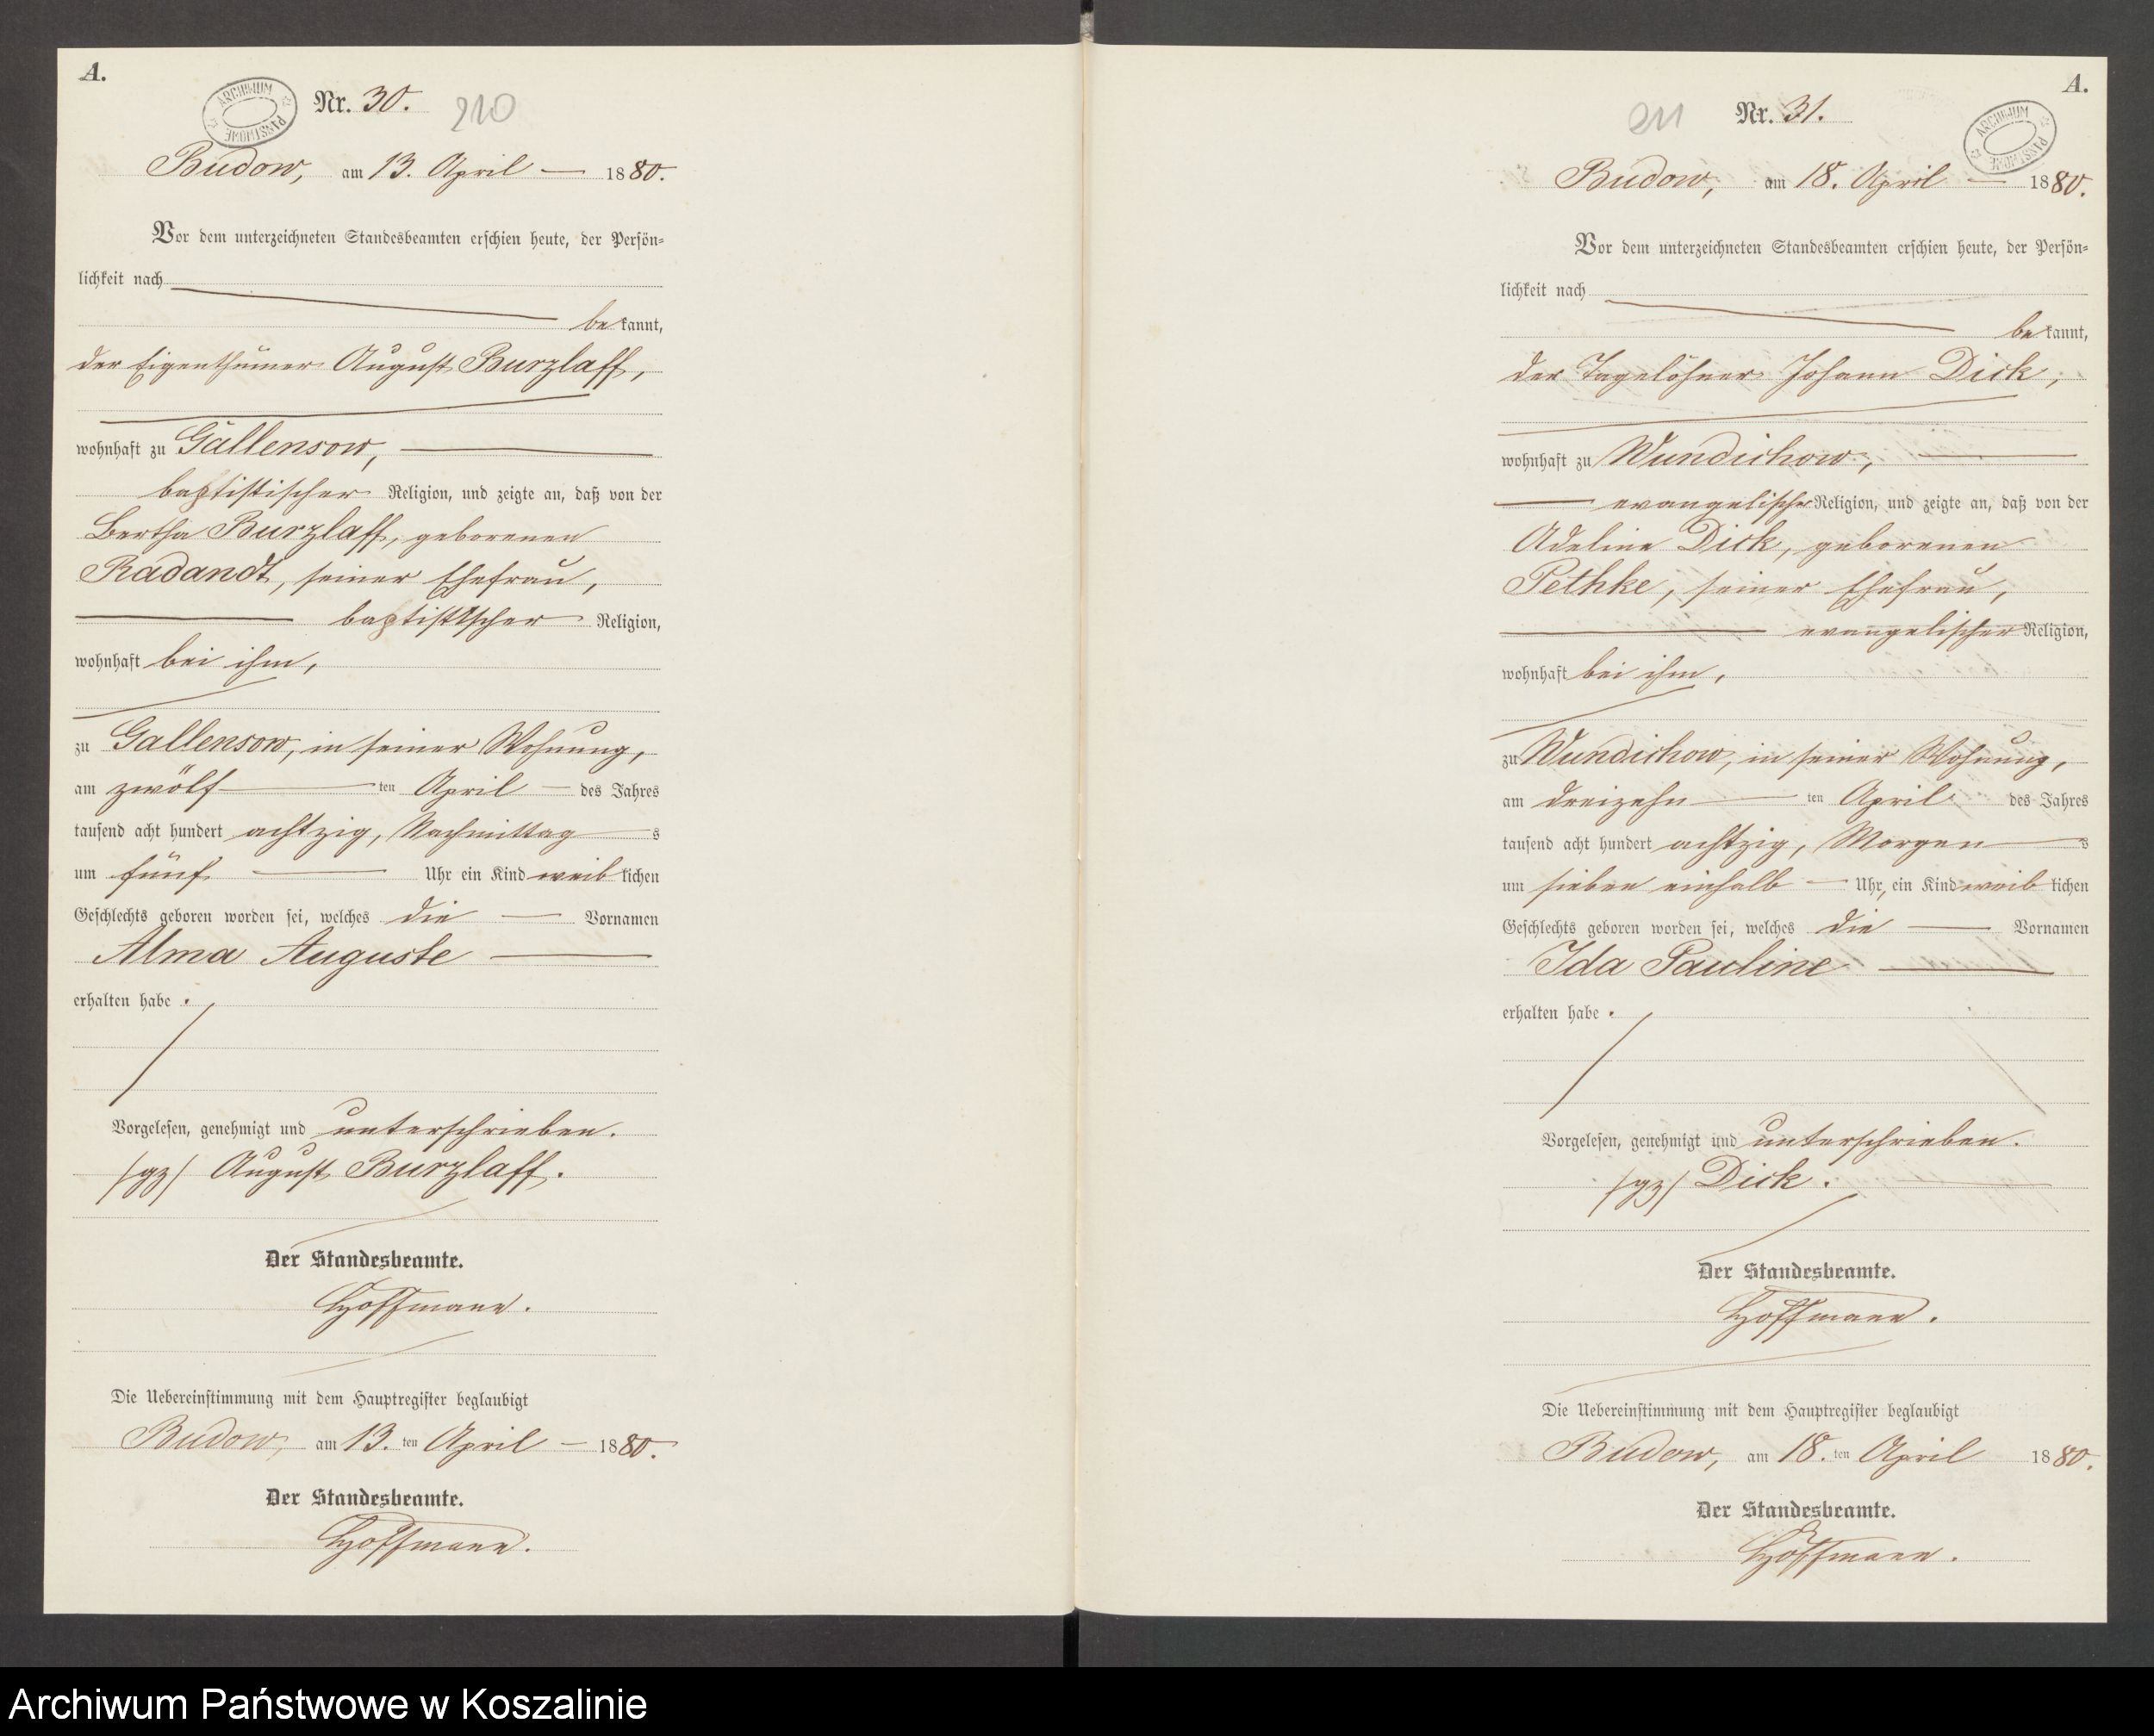 A.
ARCHIWUM PAŃSTWOWE
Nr. 30. 210
Budow, am 13. April — 1880.
Vor dem unterzeichneten Standesbeamten erschien heute, der Persön-
lichkeit nach
bekannt,
der Eigenthümer August Burzlaff,
wohnhaft zu Gallensow,
baptistischer Religion, und zeigte an, daß von der
Bertha Burzlaff, geborenen
Radandt, seiner Ehefrau,
baptistischer Religion,
wohnhaft bei ihm,
zu Gallensow, in seiner Wohnung,
am zwölf ten April des Jahres
tausend acht hundert achtzig, Nachmittag s
um fünf Uhr ein Kind weiblichen
Geschlechts geboren worden sei, welches die Vornamen
Alma Auguste
erhalten habe.
Vorgelesen, genehmigt und unterschrieben.
/gz/ August Burzlaff.
Der Standesbeamte.
Hoffmann.
Die Uebereinstimmung mit dem Hauptregister beglaubigt
Budow, am 13. ten April — 1880.
Der Standesbeamte.
Hoffmann.
A.
211 Nr. 31.
ARCHIWUM PAŃSTWOWE
Budow, am 18. April — 1880.
Vor dem unterzeichneten Standesbeamten erschien heute, der Persön-
lichkeit nach
bekannt,
der Tagelöhner Johann Dick,
wohnhaft zu Wundichow,
evangelischer Religion, und zeigte an, daß von der
Adeline Dick, geborenen
Pethke, seiner Ehefrau,
evangelischer Religion,
wohnhaft bei ihm,
zu Wundichow, in seiner Wohnung,
am dreizehn ten April des Jahres
tausend acht hundert achtzig, Morgen s
um sieben einhalb Uhr, ein Kind weiblichen
Geschlechts geboren worden sei, welches die Vornamen
Ida Pauline
erhalten habe.
Vorgelesen, genehmigt und unterschrieben.
/gz/ Dick.
Der Standesbeamte.
Hoffmann.
Die Uebereinstimmung mit dem Hauptregister beglaubigt
Budow, am 18. ten April 1880.
Der Standesbeamte.
Hoffmann.
Archiwum Państwowe w Koszalinie